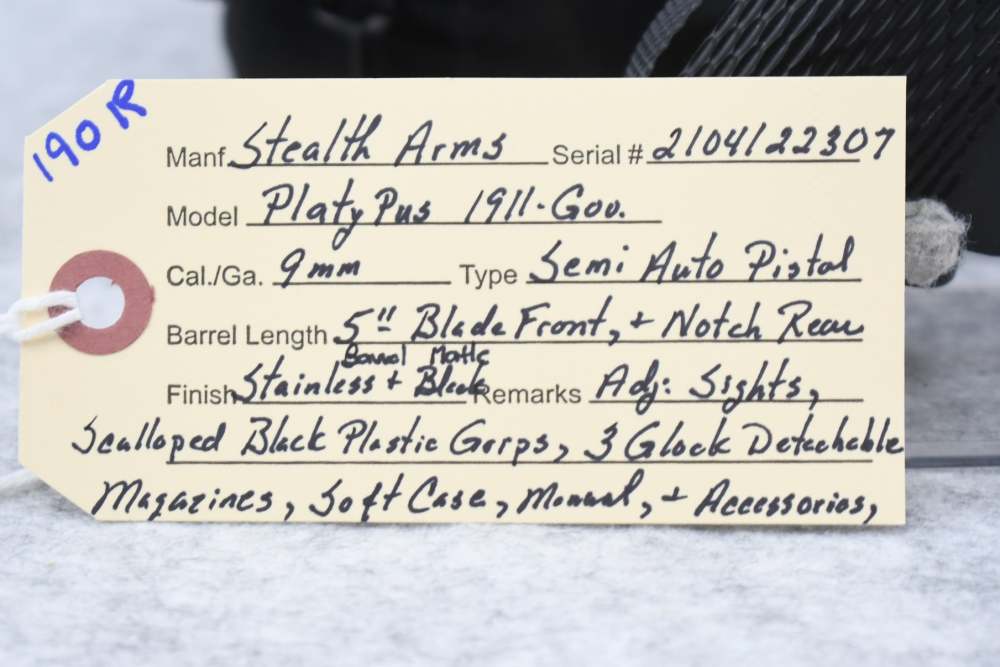 190R
Manf. Stealth Arms Serial # 2104122307
Model PlatyPus 1911-Gov.
Cal./Ga. 9mm Type Semi Auto Pistol
Barrel Length 5" Blade Front, + Notch Rear
Barrel Matte
Finish Stainless + Black Remarks Adj: Sights,
Scalloped Black Plastic Gerps, 3 Glock Detachable
Magazines, Soft Case, Manual, + Accessories,